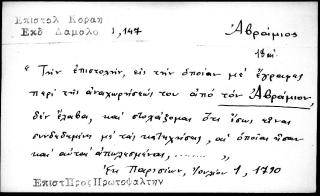 Επιστολ Κοραη
Εκδ Δαμαλο 1,147
Ἀβράμιος
18 αἰ.
« Τὴν ἐπιστολήν, εἰς τὴν ὁποίαν μὲ ἔγραφες
περὶ τῆς ἀναχωρήσεώς του ἀπὸ τὸν Ἀβράμιον,
δὲν ἔλαβα, καὶ στοχάζομαι ὅτι ἴσως εἶναι
συνδεδεμένη μὲ τὰς κατηχήσεις, αἱ ὁποῖαι ἦσαν
καὶ αὐταὶ ἀπολεσμέναι, ........ »
Ἐκ Παρισίων, Ἰουλίου 1, 1790
Επιστ Προς Πρωτοψαλτην